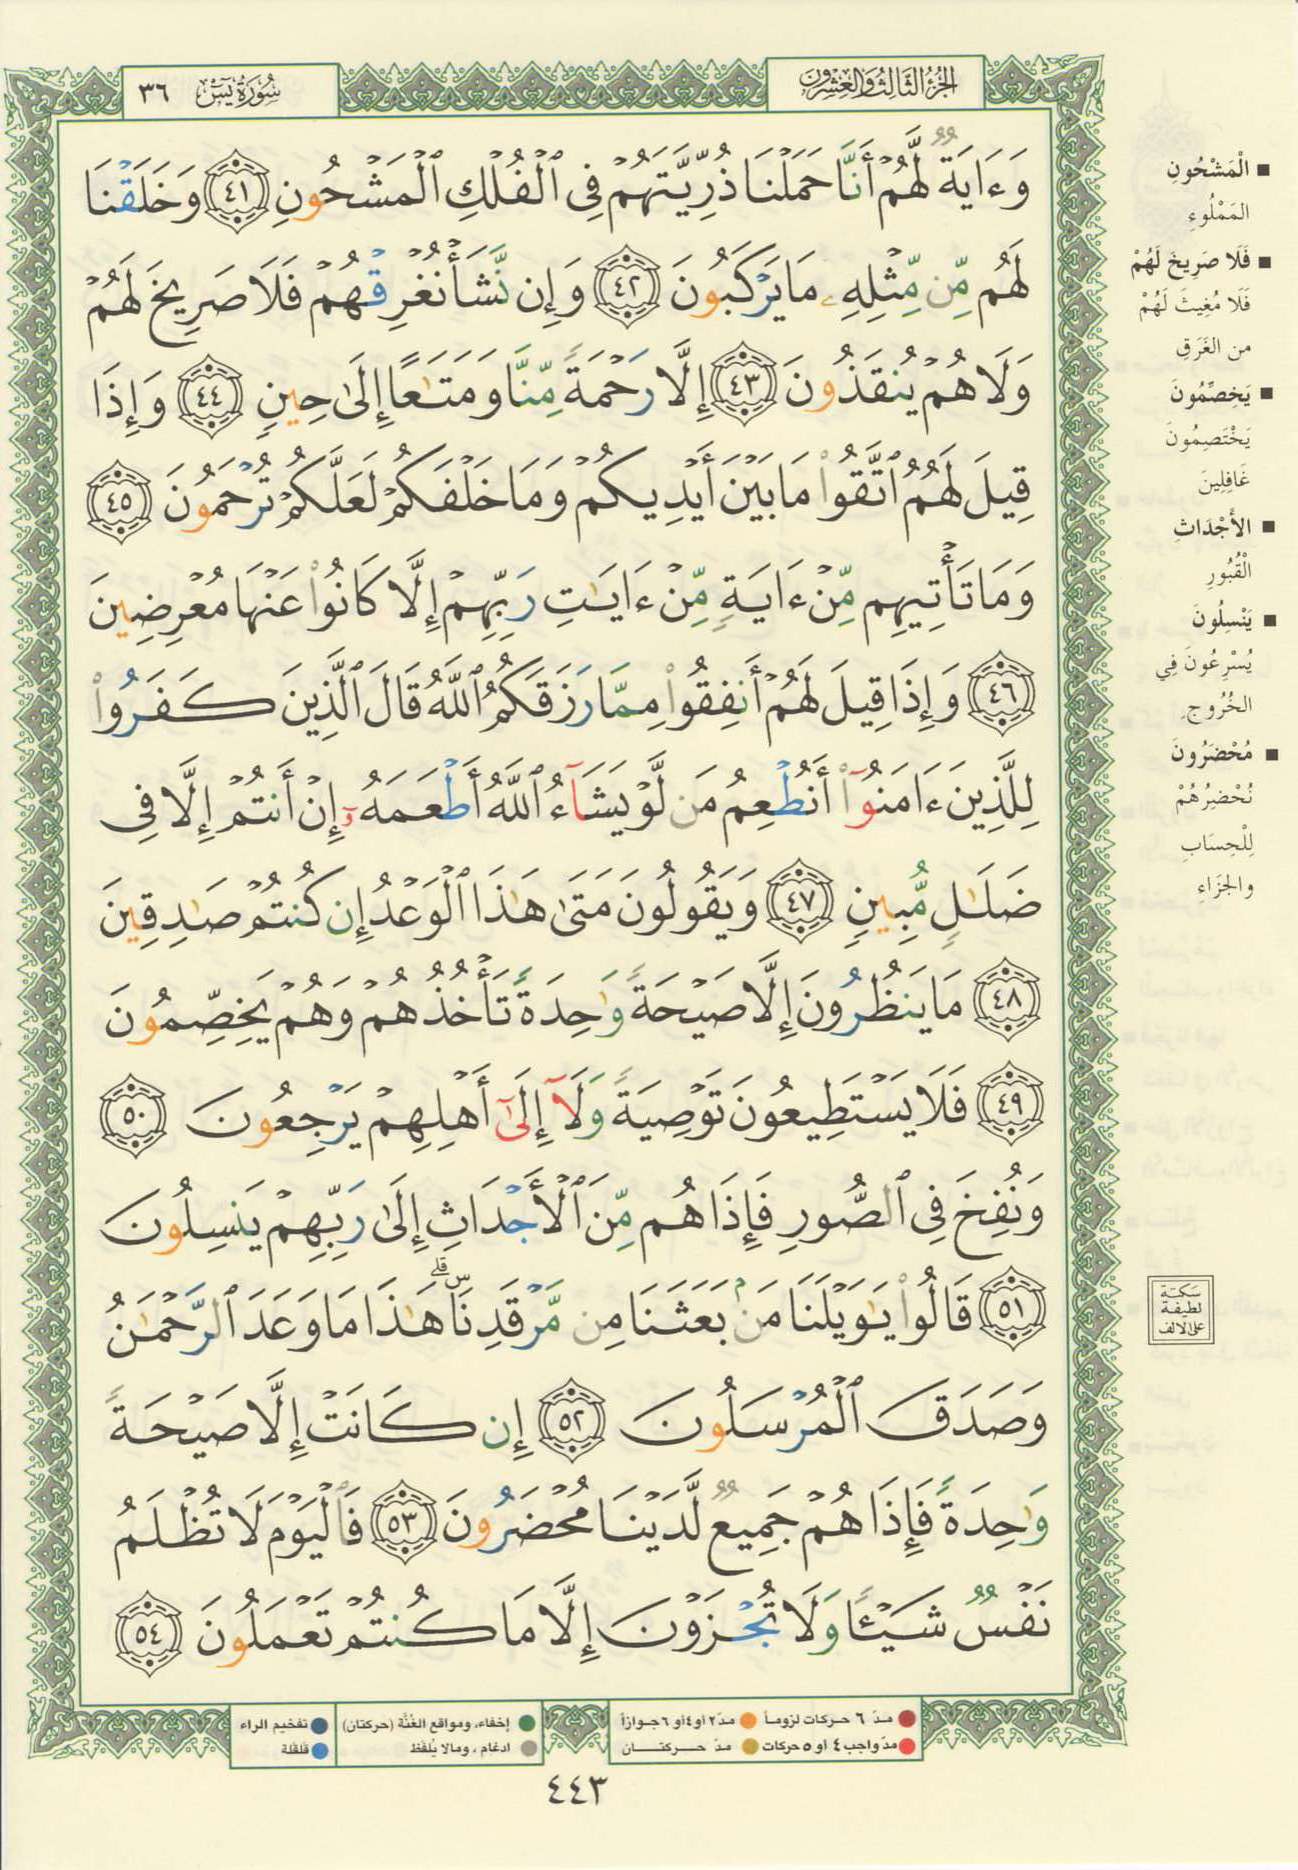 الجُزْءُ الثَّالِثُ وَالعِشْرُونَ
سُورَةُ يسٓ ٣٦
وَءَايَةٌ لَّهُمْ أَنَّا حَمَلْنَا ذُرِّيَّتَهُمْ فِى ٱلْفُلْكِ ٱلْمَشْحُونِ ٤١ وَخَلَقْنَا
لَهُم مِّن مِّثْلِهِۦ مَا يَرْكَبُونَ ٤٢ وَإِن نَّشَأْ نُغْرِقْهُمْ فَلَا صَرِيخَ لَهُمْ
وَلَا هُمْ يُنقَذُونَ ٤٣ إِلَّا رَحْمَةً مِّنَّا وَمَتَـٰعًا إِلَىٰ حِينٍ ٤٤ وَإِذَا
قِيلَ لَهُمُ ٱتَّقُوا۟ مَا بَيْنَ أَيْدِيكُمْ وَمَا خَلْفَكُمْ لَعَلَّكُمْ تُرْحَمُونَ ٤٥
وَمَا تَأْتِيهِم مِّنْ ءَايَةٍ مِّنْ ءَايَـٰتِ رَبِّهِمْ إِلَّا كَانُوا۟ عَنْهَا مُعْرِضِينَ
٤٦ وَإِذَا قِيلَ لَهُمْ أَنفِقُوا۟ مِمَّا رَزَقَكُمُ ٱللَّهُ قَالَ ٱلَّذِينَ كَفَرُوا۟
لِلَّذِينَ ءَامَنُوٓا۟ أَنُطْعِمُ مَن لَّوْ يَشَآءُ ٱللَّهُ أَطْعَمَهُۥٓ إِنْ أَنتُمْ إِلَّا فِى
ضَلَـٰلٍ مُّبِينٍ ٤٧ وَيَقُولُونَ مَتَىٰ هَـٰذَا ٱلْوَعْدُ إِن كُنتُمْ صَـٰدِقِينَ
٤٨ مَا يَنظُرُونَ إِلَّا صَيْحَةً وَٰحِدَةً تَأْخُذُهُمْ وَهُمْ يَخِصِّمُونَ
٤٩ فَلَا يَسْتَطِيعُونَ تَوْصِيَةً وَلَآ إِلَىٰٓ أَهْلِهِمْ يَرْجِعُونَ ٥٠
وَنُفِخَ فِى ٱلصُّورِ فَإِذَا هُم مِّنَ ٱلْأَجْدَاثِ إِلَىٰ رَبِّهِمْ يَنسِلُونَ
٥١ قَالُوا۟ يَـٰوَيْلَنَا مَنۢ بَعَثَنَا مِن مَّرْقَدِنَا ۜ ۗ هَـٰذَا مَا وَعَدَ ٱلرَّحْمَـٰنُ
وَصَدَقَ ٱلْمُرْسَلُونَ ٥٢ إِن كَانَتْ إِلَّا صَيْحَةً
وَٰحِدَةً فَإِذَا هُمْ جَمِيعٌ لَّدَيْنَا مُحْضَرُونَ ٥٣ فَٱلْيَوْمَ لَا تُظْلَمُ
نَفْسٌ شَيْـًٔا وَلَا تُجْزَوْنَ إِلَّا مَا كُنتُمْ تَعْمَلُونَ ٥٤
■ الْمَشْحُونِ
المَمْلُوءِ
■ فَلَا صَرِيخَ لَهُمْ
فَلَا مُغِيثَ لَهُمْ
من الغَرَقِ
■ يَخِصِّمُونَ
يَخْتَصِمُونَ
غَافِلِينَ
■ الأَجْدَاثِ
الْقُبُورِ
■ يَنْسِلُونَ
يُسْرِعُونَ فِي
الخُرُوجِ
■ مُحْضَرُونَ
نُحْضِرُهُمْ
لِلْحِسَابِ
والجَزَاءِ
سكتة
لطيفة
على الألف
مدّ ٦ حركات لزوماً
مدّ ٢ او ٤ او ٦ جوازاً
إخفاء، ومواقع الغُنَّة (حركتان)
تفخيم الراء
مدّ واجب ٤ او ٥ حركات
مدّ حـركتـان
ادغام ، ومالا يُلفَظ
قلقلة
٤٤٣